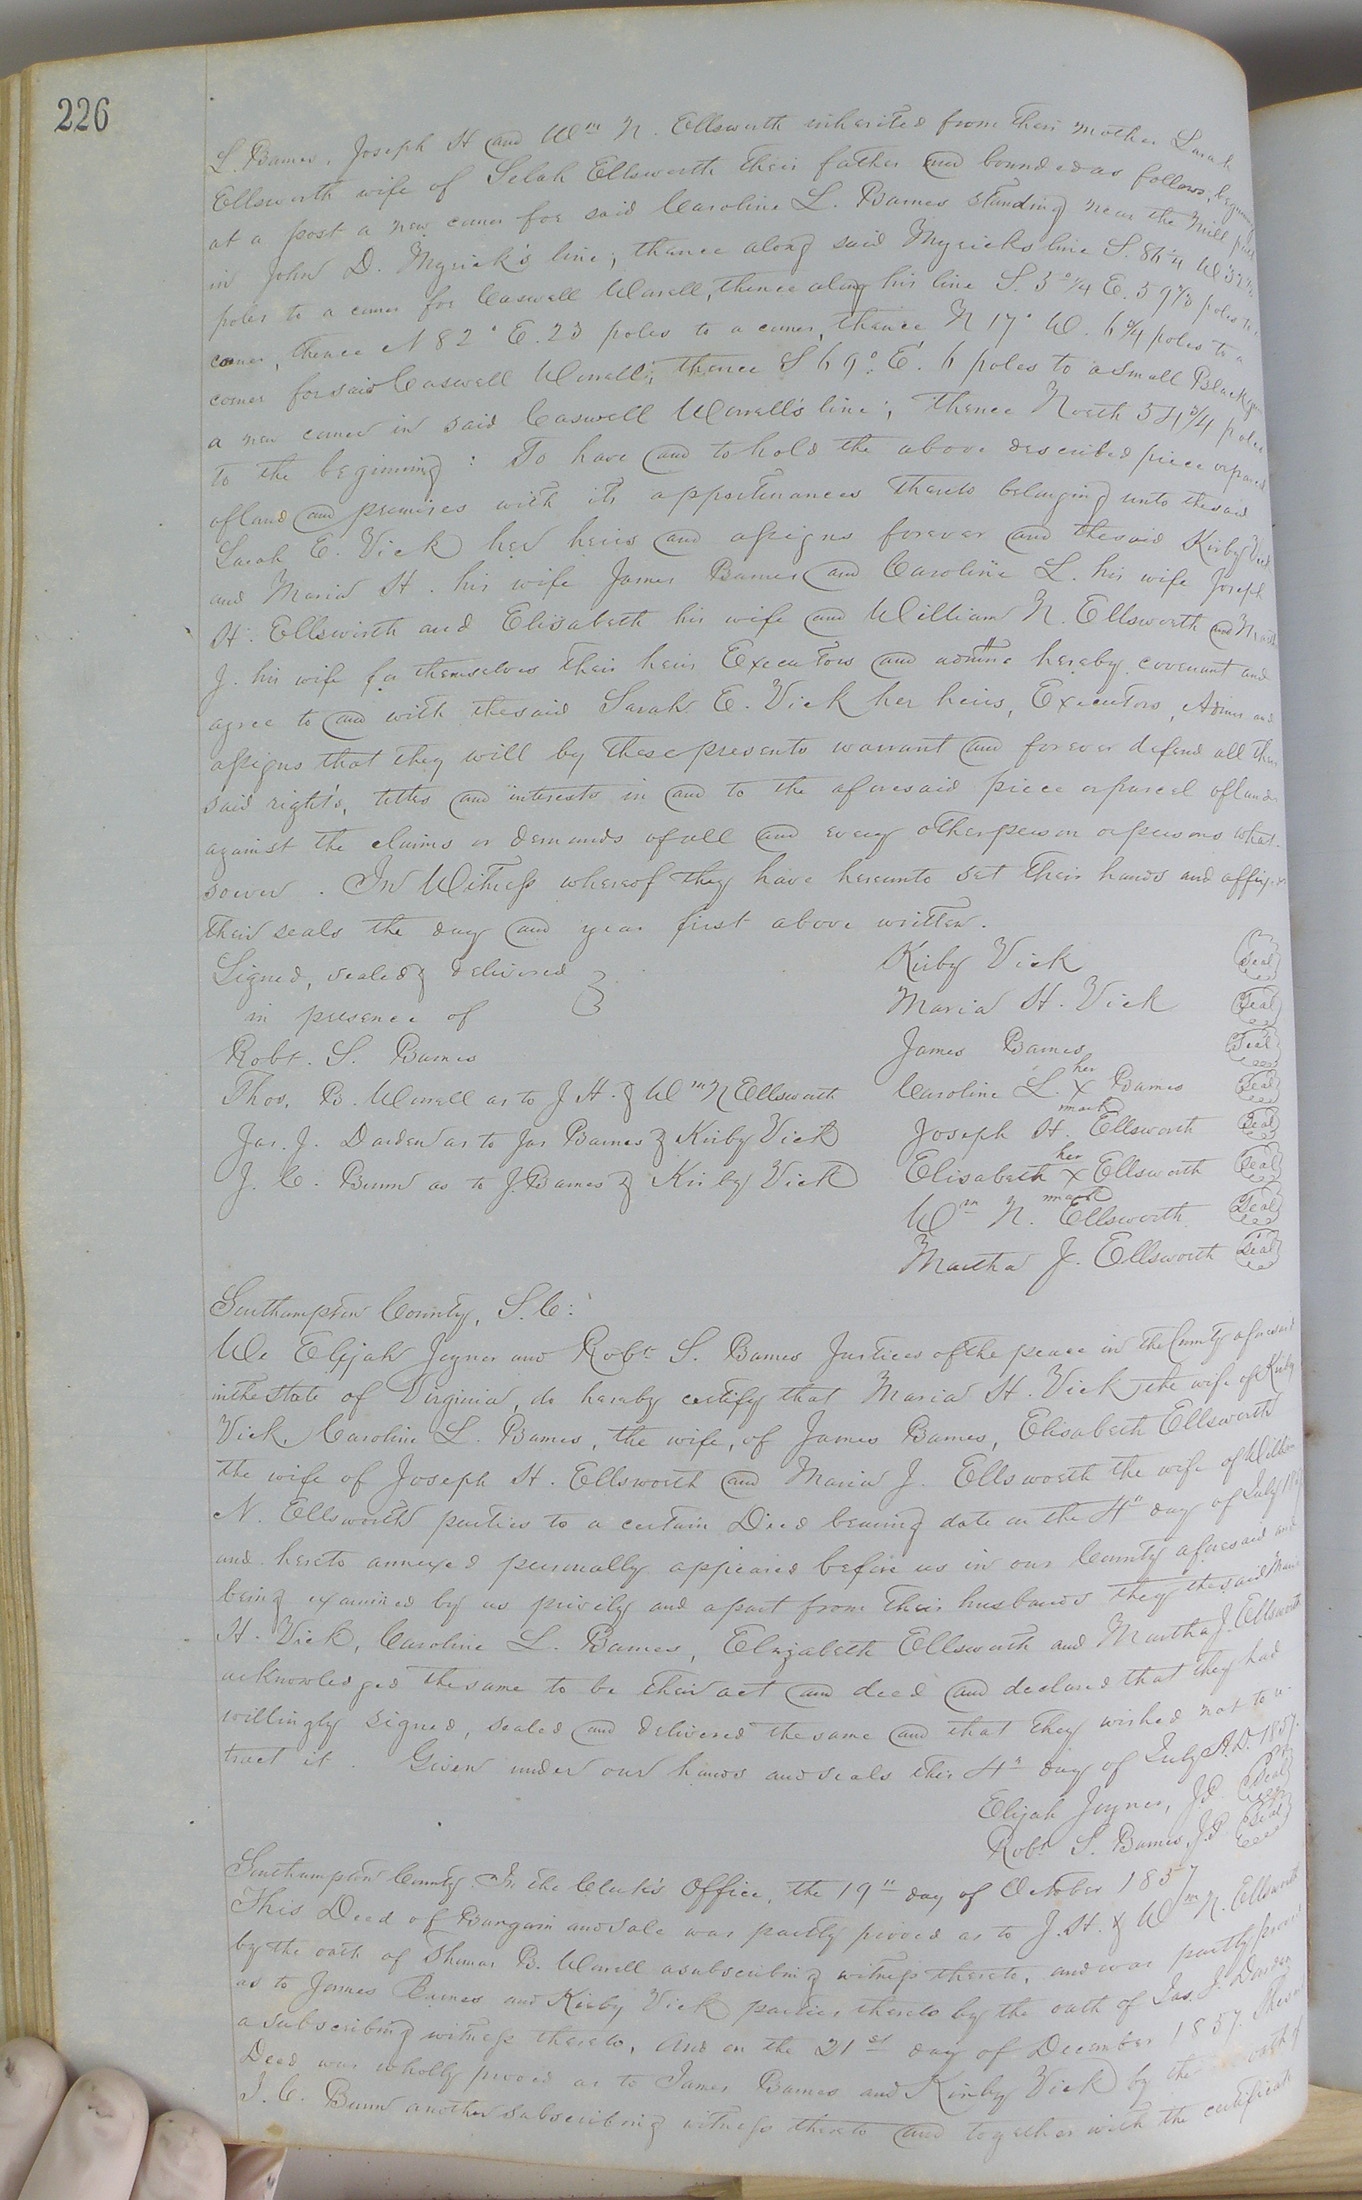 226
L. Barnes, Joseph H and Wm N. Ellsworth inherited from their mother Sarah
Ellsworth wife of Selah Ellsworth their father and bounded as follows, beginning
at a post a new corner for said Caroline L. Barnes standing near the mill path
in John D. Myrick's line; thence along said Myricks line S. 86 1/4 W 32
poles to a corner for Caswell Worrell, thence along his line S. 3° 1/4 E. 59 poles to a
corner, thence N 82° E. 23 poles to a corner, thence N 17° W. 6 3/4 poles to a
corner for said Caswell Worrell; thence S 69° E. 6 poles to a small Black gum
a new corner in said Caswell Worrell's line; thence North 54 3/4 poles
to the beginning: To have and to hold the above described piece or parcel
of land and premises with its appurtenances thereto belonging unto the said
Sarah E. Vick her heirs and assigns forever and the said Kirby Vick
and Maria H. his wife James Barnes and Caroline L. his wife Joseph
H. Ellsworth and Elisabeth his wife and William N. Ellsworth and Martha
J. his wife for themselves their heirs Executors and hereby covenant and
agree to and with the said Sarah E. Vick her heirs, Executors, Admrs and
assigns that they will by these presents warrant and forever defend all their
said right's, titles and interests in and to the aforesaid piece or parcel of land
against the claims or demands of all and every other person or persons what-
soever. In Witness whereof they have hereunto set their hands and affix
their seals the day and year first above written.
Signed, sealed & delivered Kirby Vick Seal
in presence of Maria H. Vick Seal
Robt. S. Barnes James Barnes Seal
Thos. B. Worrell as to J. H. & Wm N Ellsworth Caroline L. her x mark Barnes Seal
Jas. J. Darden as to Jas Barnes & Kirby Vick Joseph H. Ellsworth Seal
J. C. Bunn as to J. Barnes & Kirby Vick Elisabeth her x mark Ellsworth Seal
Wm N. Ellsworth Seal
Martha J. Ellsworth Seal
Southampton County, S. C:
We Elijah Joyner and Robt S. Barnes Justices of the peace in the County aforesaid
in the State of Virginia, do hereby certify that Maria H. Vick the wife of Kirby
Vick, Caroline L. Barnes, the wife, of James Barnes, Elisabeth Ellsworth
the wife of Joseph H. Ellsworth and Maria J. Ellsworth the wife of William
N. Ellsworth parties to a certain Deed bearing date on the 4th day of July 1857
and hereto annexed personally appeared before us in our County aforesaid and
being examined by us privily and apart from their husbands they the said Maria
H. Vick, Caroline L. Barnes, Elizabeth Ellsworth and Martha J. Ellsworth
acknowledged the same to be their act and deed and declared that they had
willingly signed, sealed and delivered the same and that they wished not to re-
tract it. Given under our hands and seals this 4th day of July A.D. 1857.
Elijah Joyner, J.P. Seal
Robt S. Barnes, J.P. Seal
Southampton County In the Clerk's Office, the 19th day of October 1857
This Deed of Bargain and sale was partly proved as to J. H. & Wm N. Ellsworth
by the oath of Thomas B. Worrell a subscribing witness thereto, and was partly proved
as to James Barnes and Kirby Vick parties thereto by the oath of Jas. J. Darden
a subscribing witness thereto, And on the 21st day of December 1857. This said
Deed was wholly proved as to James Barnes and Kirby Vick by the oath of
J. C. Bunn another subscribing witness thereto and together with the certificate